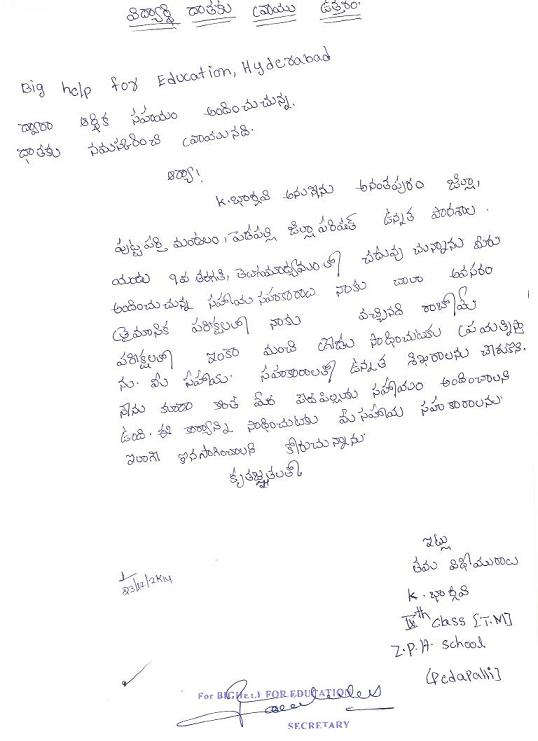 విద్యార్థి దాతకు వ్రాయు ఉత్తరం.
Big help for Education, Hyderabad
ద్వారా ఆర్థిక సహాయం అందించుచున్న
దాతకు నమస్కరించి వ్రాయునది.
ఆర్యా!
K. భార్గవి అను నేను అనంతపురం జిల్లా,
పుట్టపర్తి మండలం, పెడపల్లి జిల్లా పరిషత్ ఉన్నత పాఠశాల
యందు 9వ తరగతి, తెలుగుమాధ్యమంలో చదువు చున్నాను మీరు
అందించుచున్న సహాయ సహకారాలు నాకు చాలా అవసరం
త్రైమాసిక పరీక్షలలో నాకు వచ్చినవి రాబోయే
పరీక్షలలో ఇంకా మంచి గ్రేడు సాధించుటకు ప్రయత్నిస్తా
ను. మీ సహాయ సహకారాలతో ఉన్నత శిఖరాలను చేరుకొని.
నేను కూడా కొంత మంది పేద పిల్లలకు సహాయం అందించాలని
ఉంది. ఈ కార్యాన్ని సాధించుటకు మీ సహాయ సహకారాలను
ఇలాగే కొనసాగించాలని కోరుచున్నాను
కృతజ్ఞతలతో
ఇట్లు
తమ విధేయురాలు
K. భార్గవి
IXth class [T.M]
Z.P.H. School
[Pedapalli]
For BIGHELP FOR EDUCATION
SECRETARY